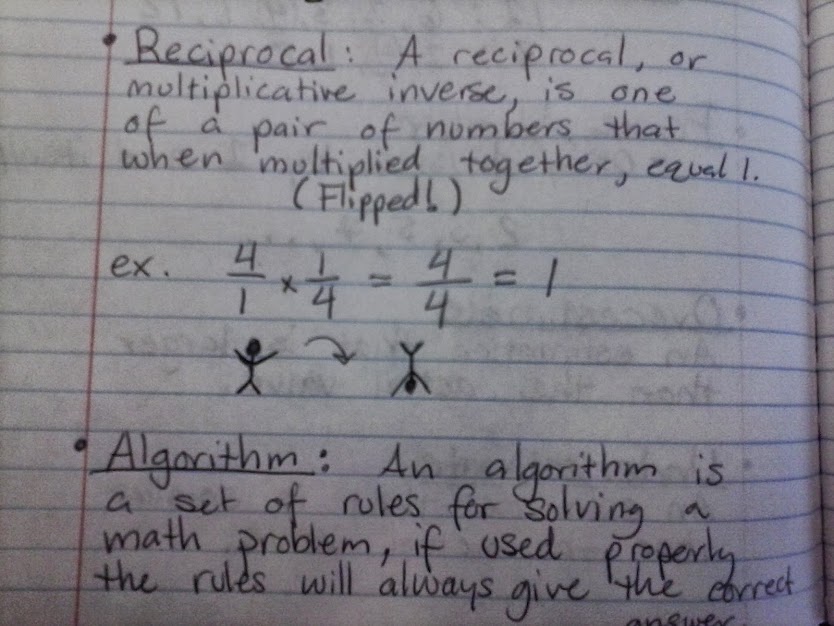 • Reciprocal: A reciprocal, or
multiplicative inverse, is one
of a pair of numbers that
when multiplied together, equal 1.
(Flipped!)
ex. 4/1 × 1/4 = 4/4 = 1
• Algorithm: An algorithm is
a set of rules for solving a
math problem, if used properly
the rules will always give the correct
answer.